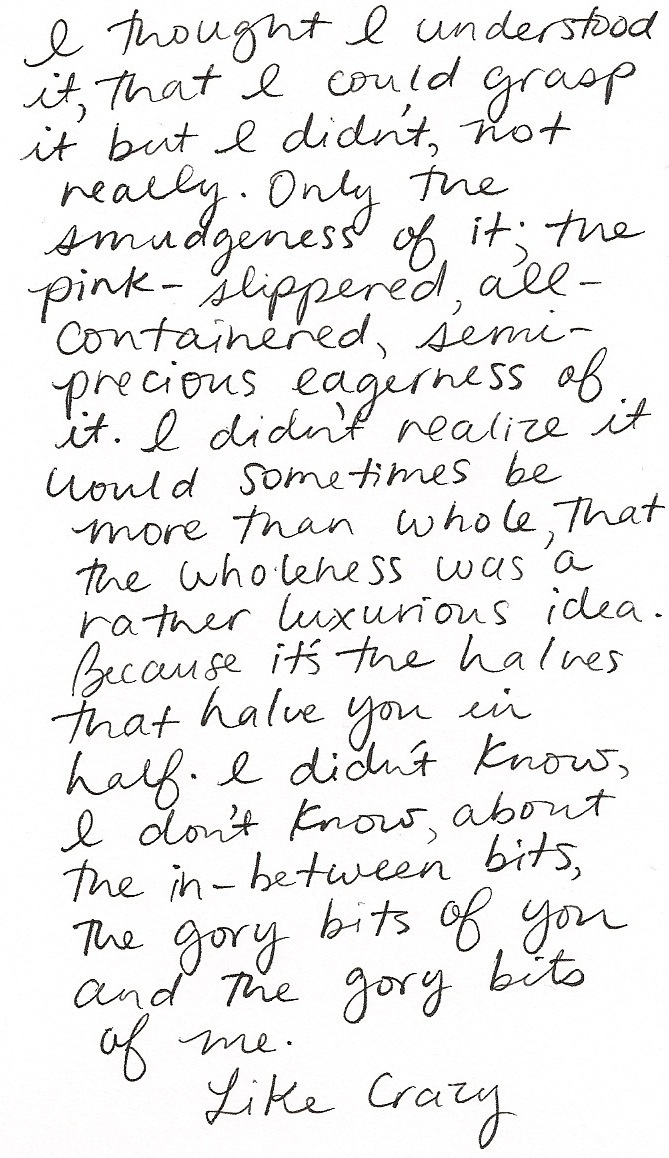 I thought I understood
it, that I could grasp
it but I didn't, not
really. Only the
smudgeness of it; the
pink-slippered, all-
containered, semi-
precious eagerness of
it. I didn't realize it
would sometimes be
more than whole, that
the wholeness was a
rather luxurious idea.
Because it's the halves
that halve you in
half. I didn't know,
I don't know, about
the in-between bits,
the gory bits of you
and the gory bits
of me.
Like Crazy